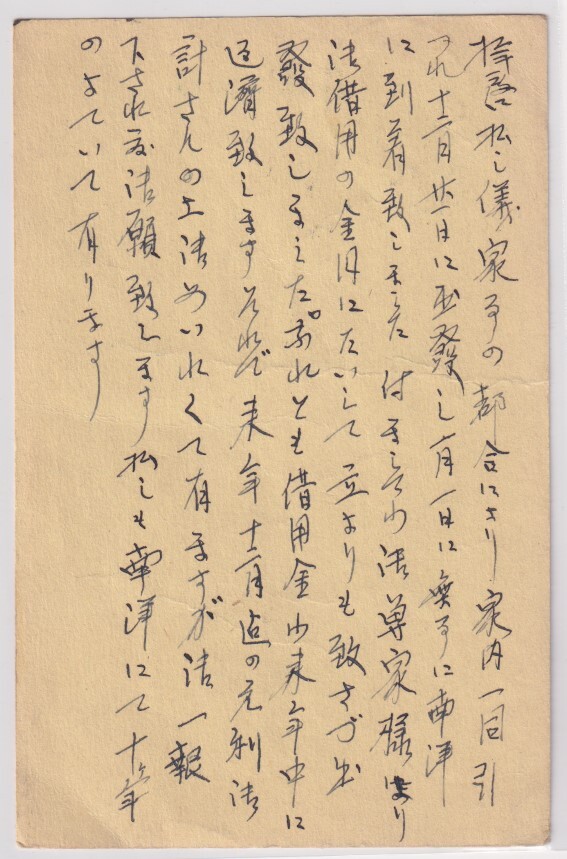 拝啓私し儀家事の都合により家内一同引
つれ十二月廿一日に出発し一月一日に無事に南洋
に到着致しました付ましてわ御尊家様より
御借用の金円にたいして立よりも致さづ出
発致しました。然れども借用金わ来年中に
返済致しますそれで来年十二月迄の元利御
計さんの上御めいれくて有ますが御一報
下され度御願致します私しも南洋にて十ヶ年
のよていて有ります